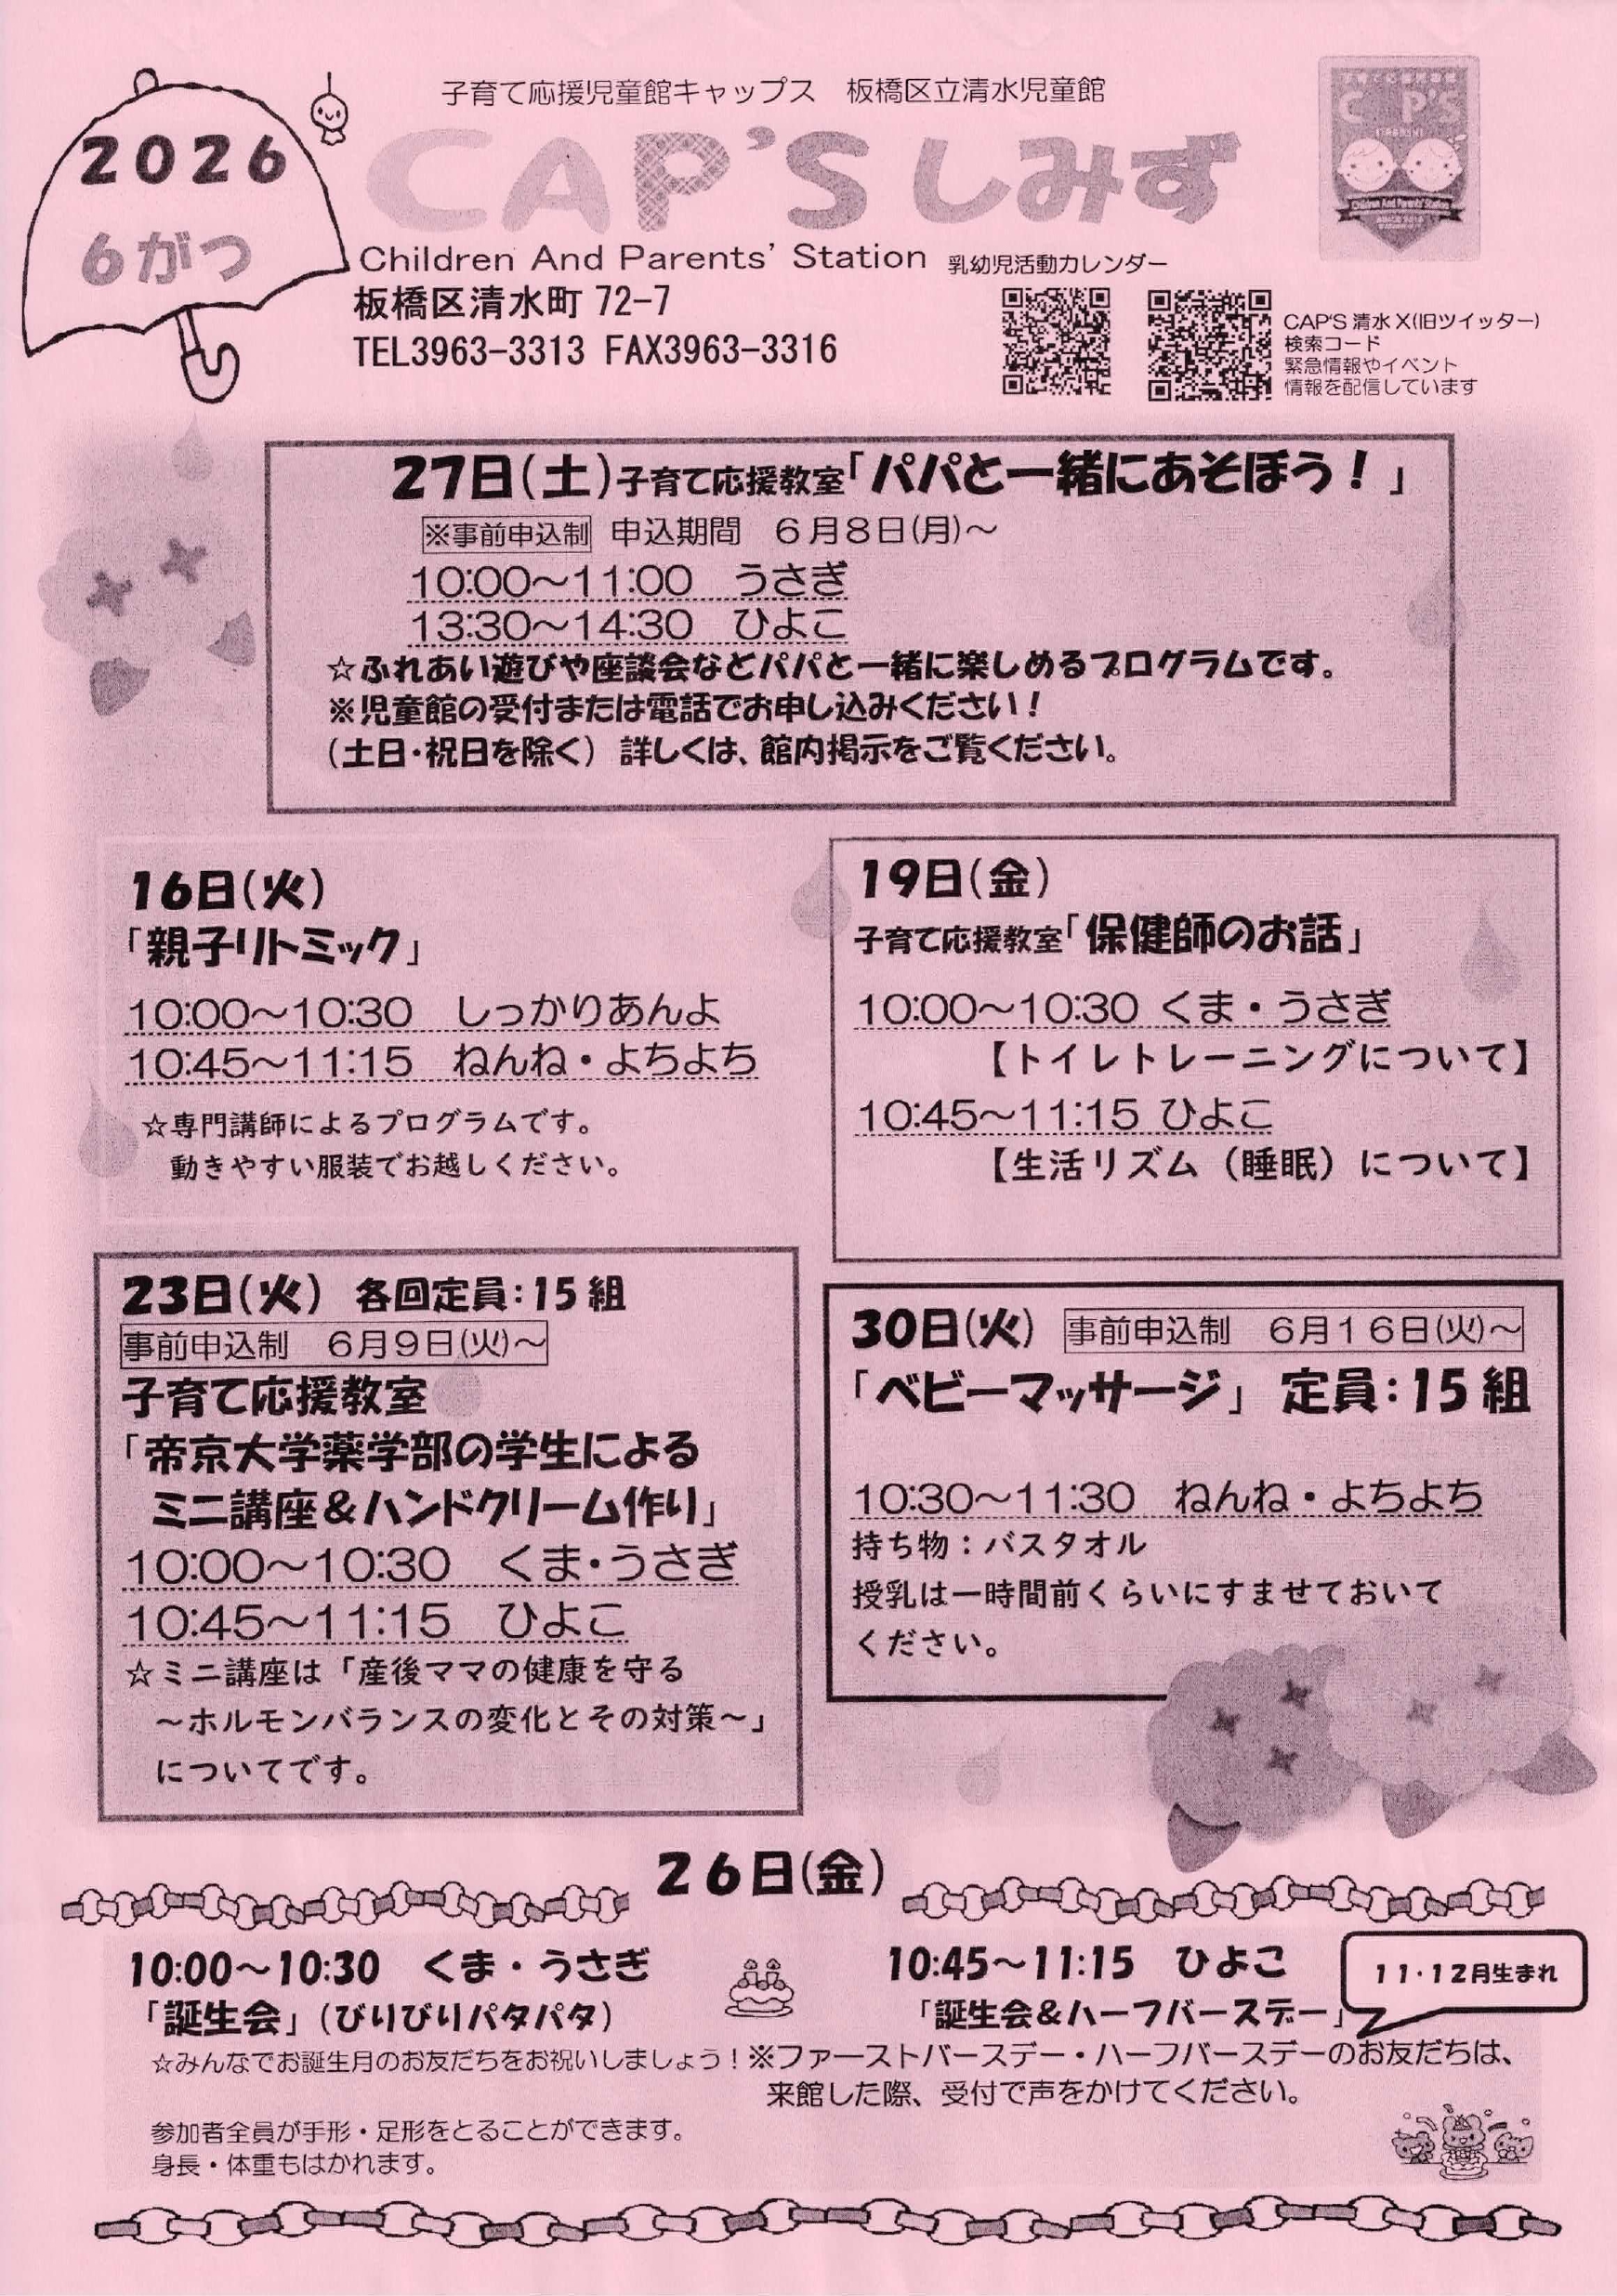 2026
6がつ
子育て応援児童館キャップス　板橋区立清水児童館
CAP'Sしみず
Children And Parents' Station 乳幼児活動カレンダー
板橋区清水町 72-7
TEL3963-3313 FAX3963-3316
CAP'S 清水 X(旧ツイッター)
検索コード
緊急情報やイベント
情報を配信しています
子育て応援児童館
CAP'S
ITABASHI
Children And Parents' Station
27日(土)子育て応援教室「パパと一緒にあそぼう！」
※事前申込制　申込期間　６月８日(月)～
10:00～11:00　うさぎ
13:30～14:30　ひよこ
☆ふれあい遊びや座談会などパパと一緒に楽しめるプログラムです。
※児童館の受付または電話でお申し込みください！
(土日・祝日を除く) 詳しくは、館内掲示をご覧ください。
16日(火)
「親子リトミック」
10:00～10:30　しっかりあんよ
10:45～11:15　ねんね・よちよち
☆専門講師によるプログラムです。
動きやすい服装でお越しください。
19日(金)
子育て応援教室「保健師のお話」
10:00～10:30 くま・うさぎ
【トイレトレーニングについて】
10:45～11:15 ひよこ
【生活リズム（睡眠）について】
23日(火)　各回定員：15組
事前申込制　６月９日(火)～
子育て応援教室
「帝京大学薬学部の学生による
ミニ講座＆ハンドクリーム作り」
10:00～10:30　くま・うさぎ
10:45～11:15　ひよこ
☆ミニ講座は「産後ママの健康を守る
～ホルモンバランスの変化とその対策～」
についてです。
30日(火)　事前申込制　６月１６日(火)～
「ベビーマッサージ」 定員：15組
10:30～11:30　ねんね・よちよち
持ち物：バスタオル
授乳は一時間前くらいにすませておいて
ください。
２６日(金)
10:00～10:30　くま・うさぎ
「誕生会」(びりびりパタパタ)
10:45～11:15　ひよこ
11・12月生まれ
「誕生会＆ハーフバースデー」
☆みんなでお誕生月のお友だちをお祝いしましょう！
※ファーストバースデー・ハーフバースデーのお友だちは、
来館した際、受付で声をかけてください。
参加者全員が手形・足形をとることができます。
身長・体重もはかれます。